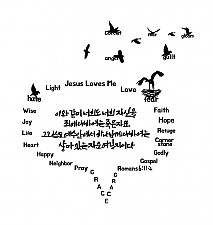 Jesus Loves Me
Light
Love
anger
guilt
hate
fear
Wise
Joy
Life
Heart
Happy
Neighbor
Pray
Faith
Hope
Refuge
Corner stone
Godly
Gospel
Romans6:11
이와 같이 너희도 너희 자신을
죄에 대하여는 죽은 자요
그리스도 예수 안에서 하나님께 대하여는
살아 있는 자로 여길지어다
GRACE
GRACE